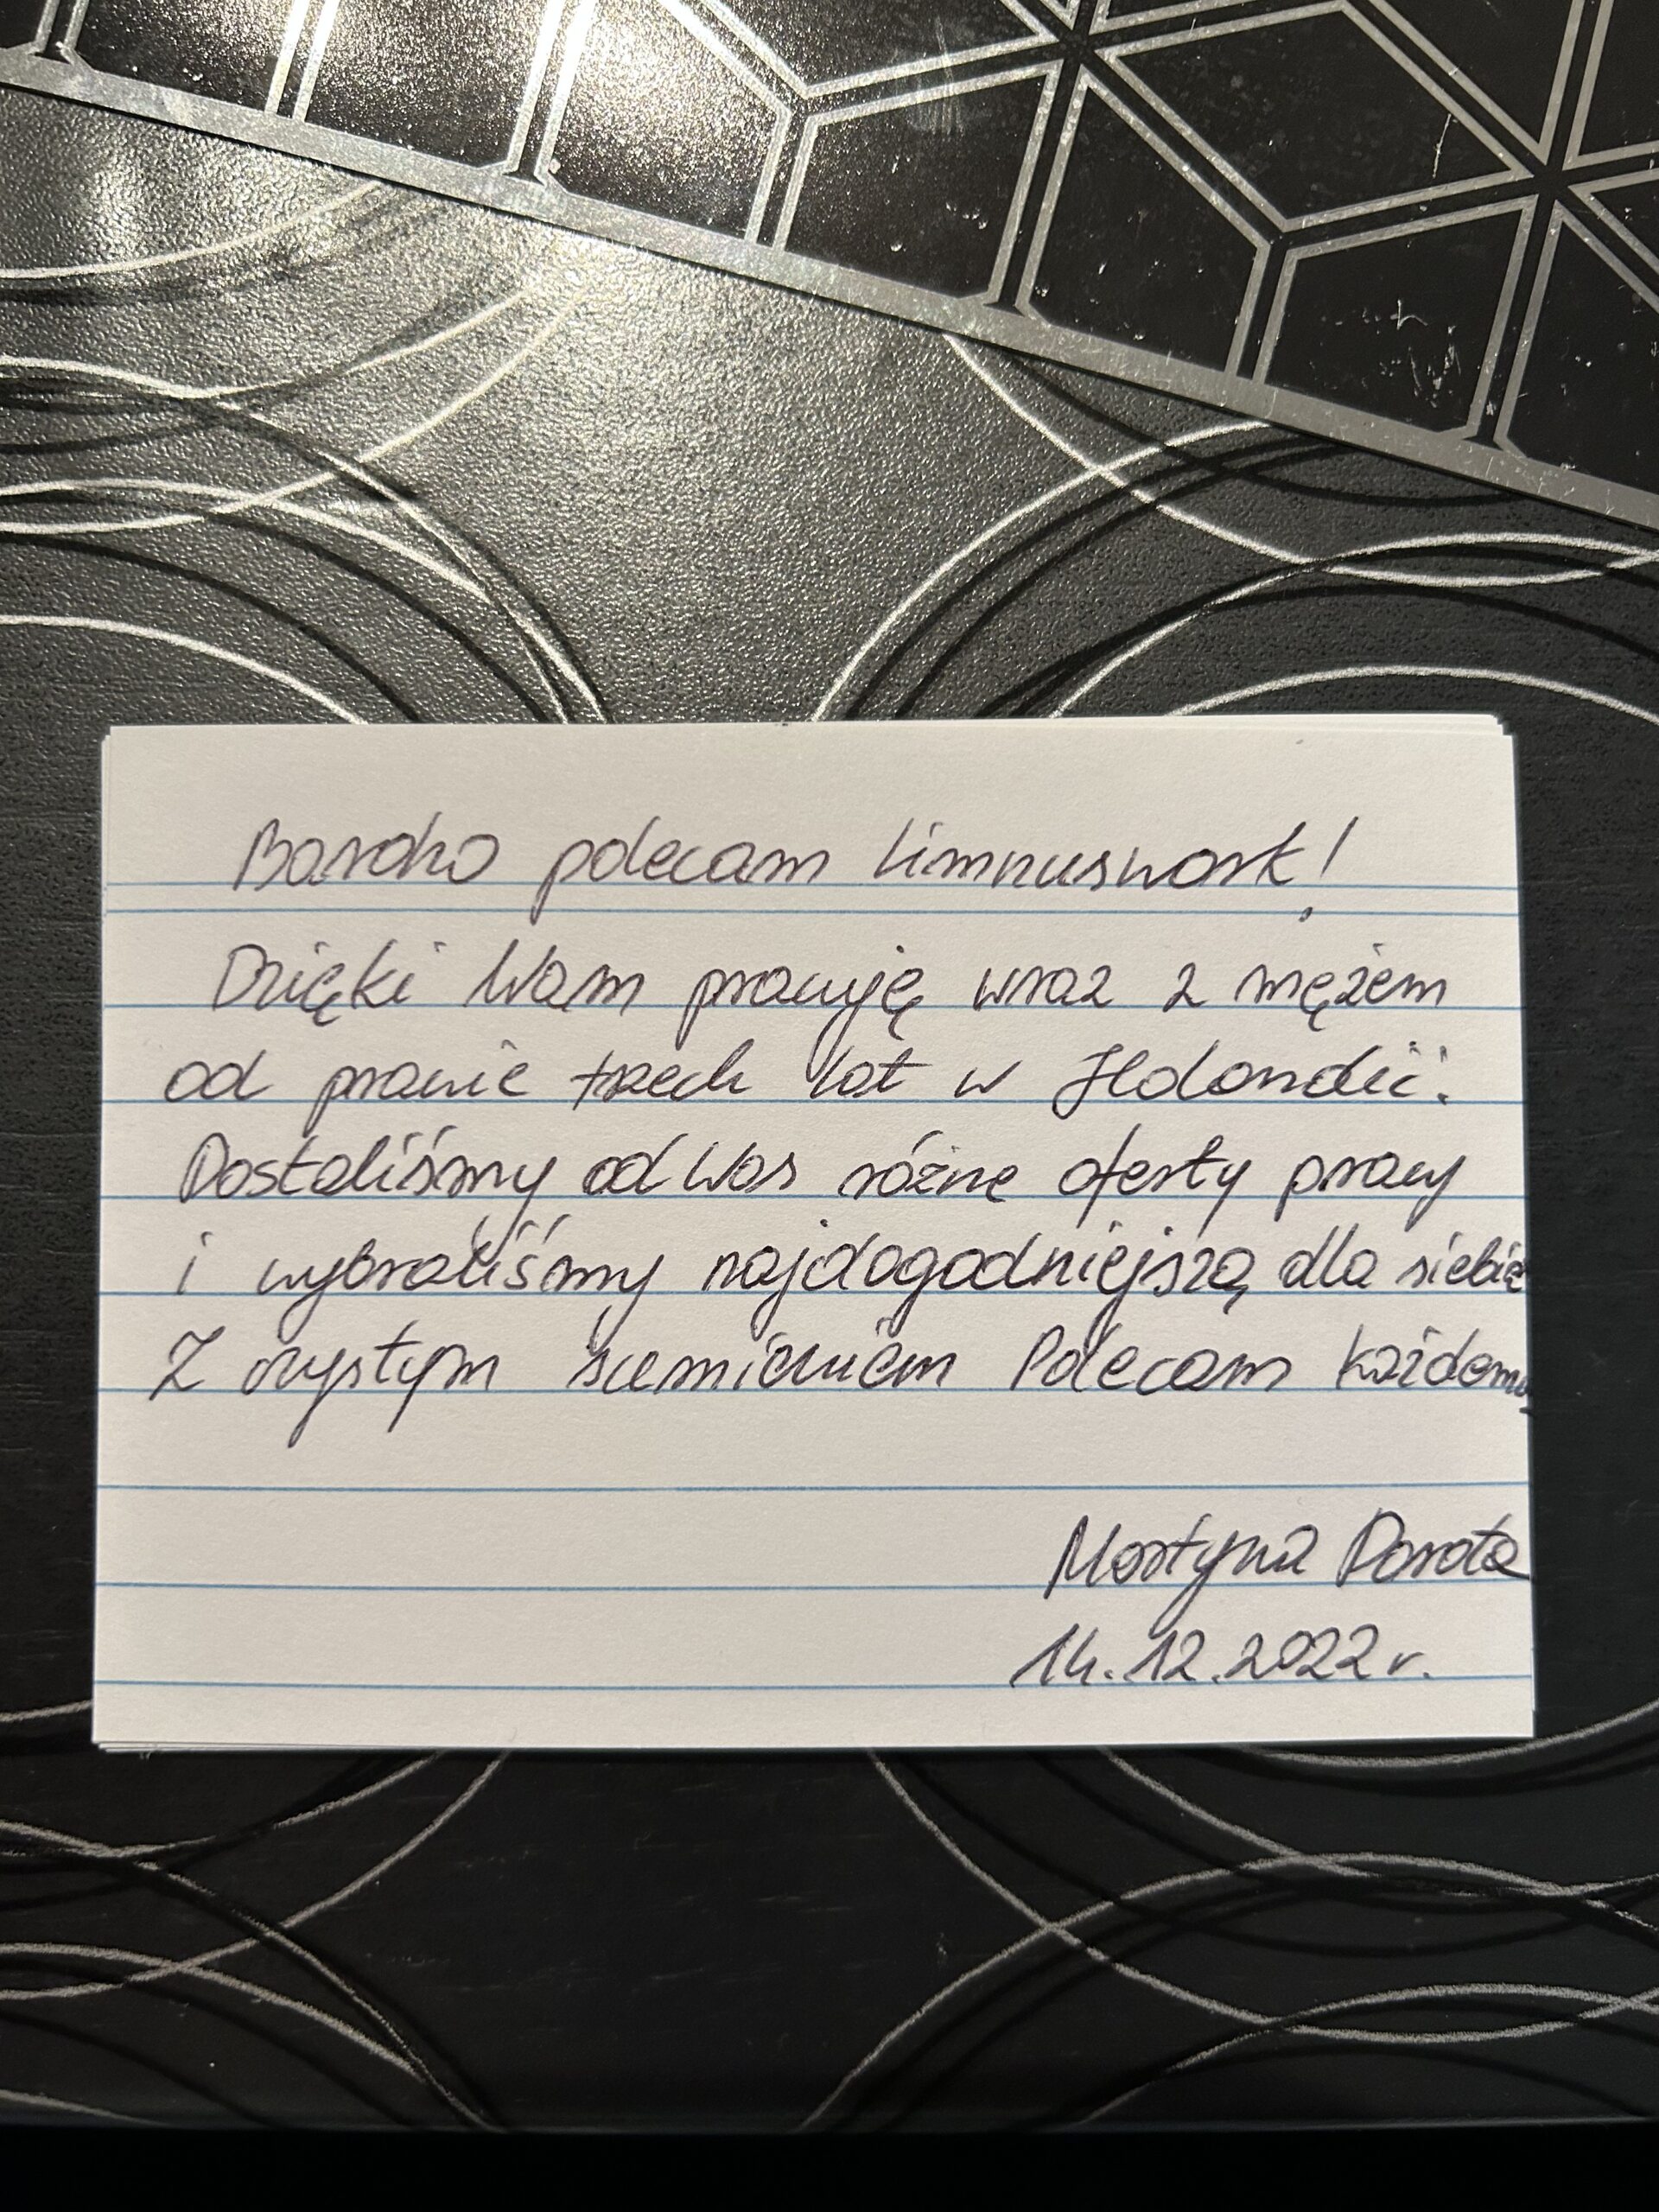 Bardzo polecam Linnuswork!
Dzięki Wam pracuję wraz z mężem
od prawie trzech lat w Holandii.
Dostaliśmy od Was różne oferty pracy
i wybraliśmy najdogodniejszą dla siebie
Z czystym sumieniem Polecam każdemu
Martyna Dorota
14.12.2022 r.